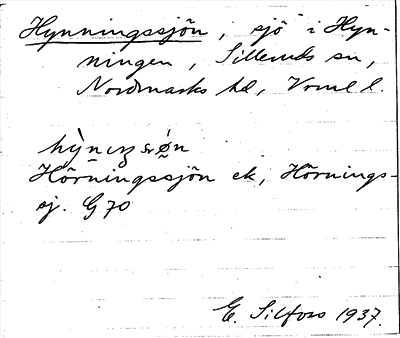 Hynningssjön, sjö i Hyn-
ningen, Silleruds sn,
Nordmarks hd, Vrml l.
Hörningssjön ek, Hörnings-
sj. G 70
E. Silfors 1937.